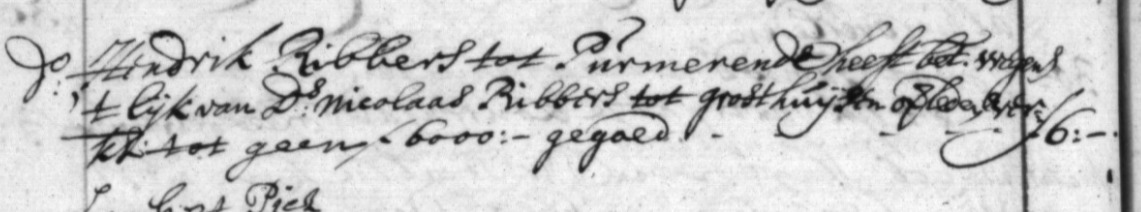 Do. Hendrik Ribbers tot Purmerende heeft bet: wegens
't lijk van Ds. Nicolaas Ribbers tot grosthuijsen overleden, ver-
kl: tot geen f 6000:– gegoed - - - - f 6:–.